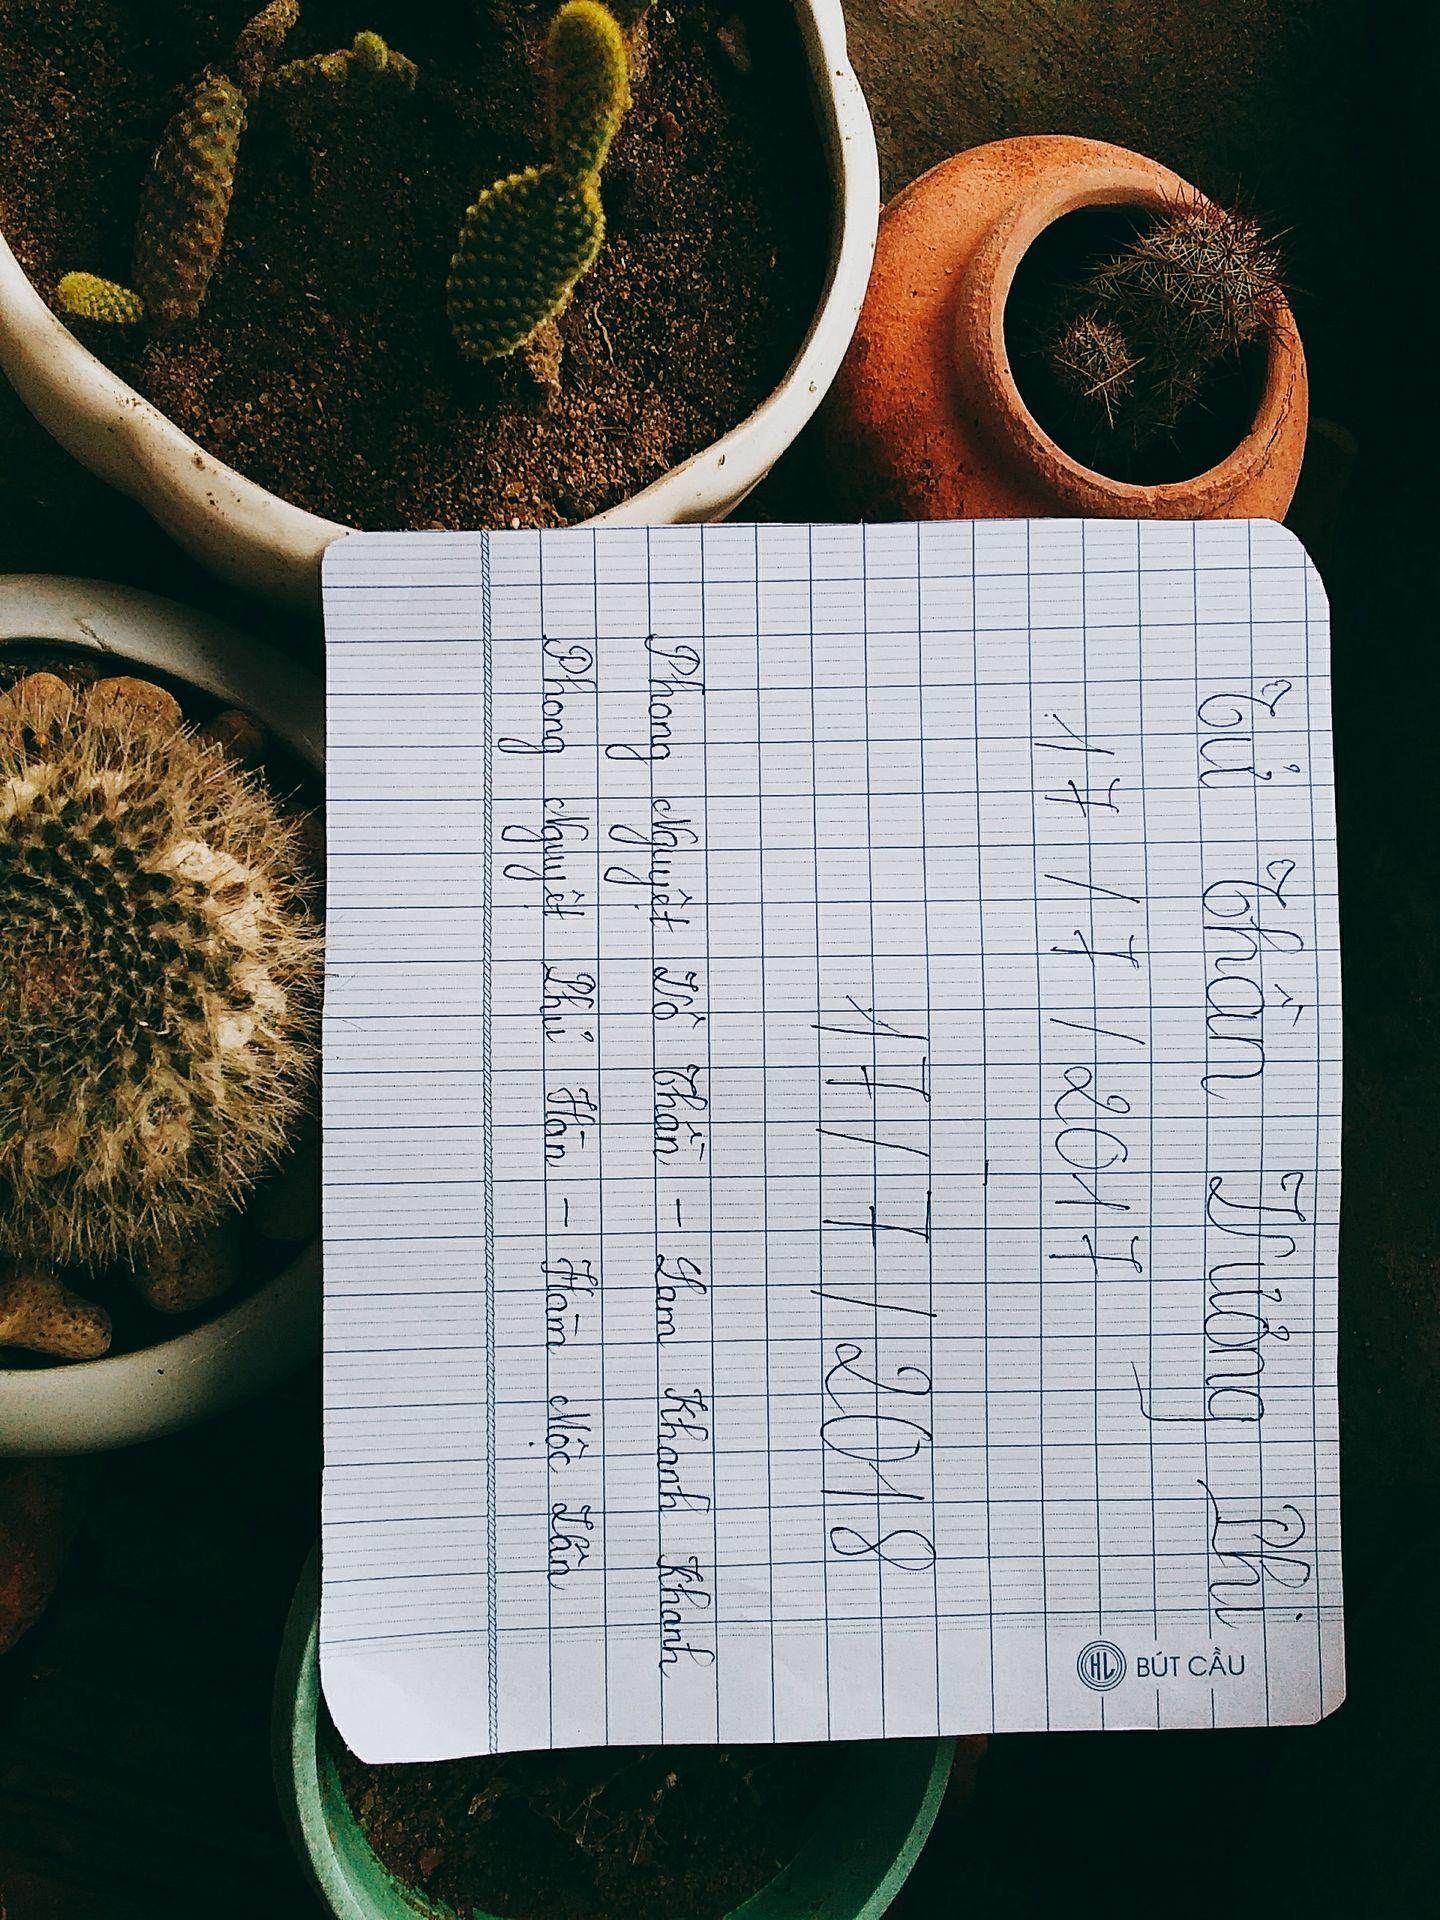 Tử Thần Tưởng Phi
17/7/2017
17/7/2018
Phong Nguyệt Tô Thần - Lam Khanh Khanh
Phong Nguyệt Phủ Hàn - Hàm Mộc Lân
HL BÚT CẦU